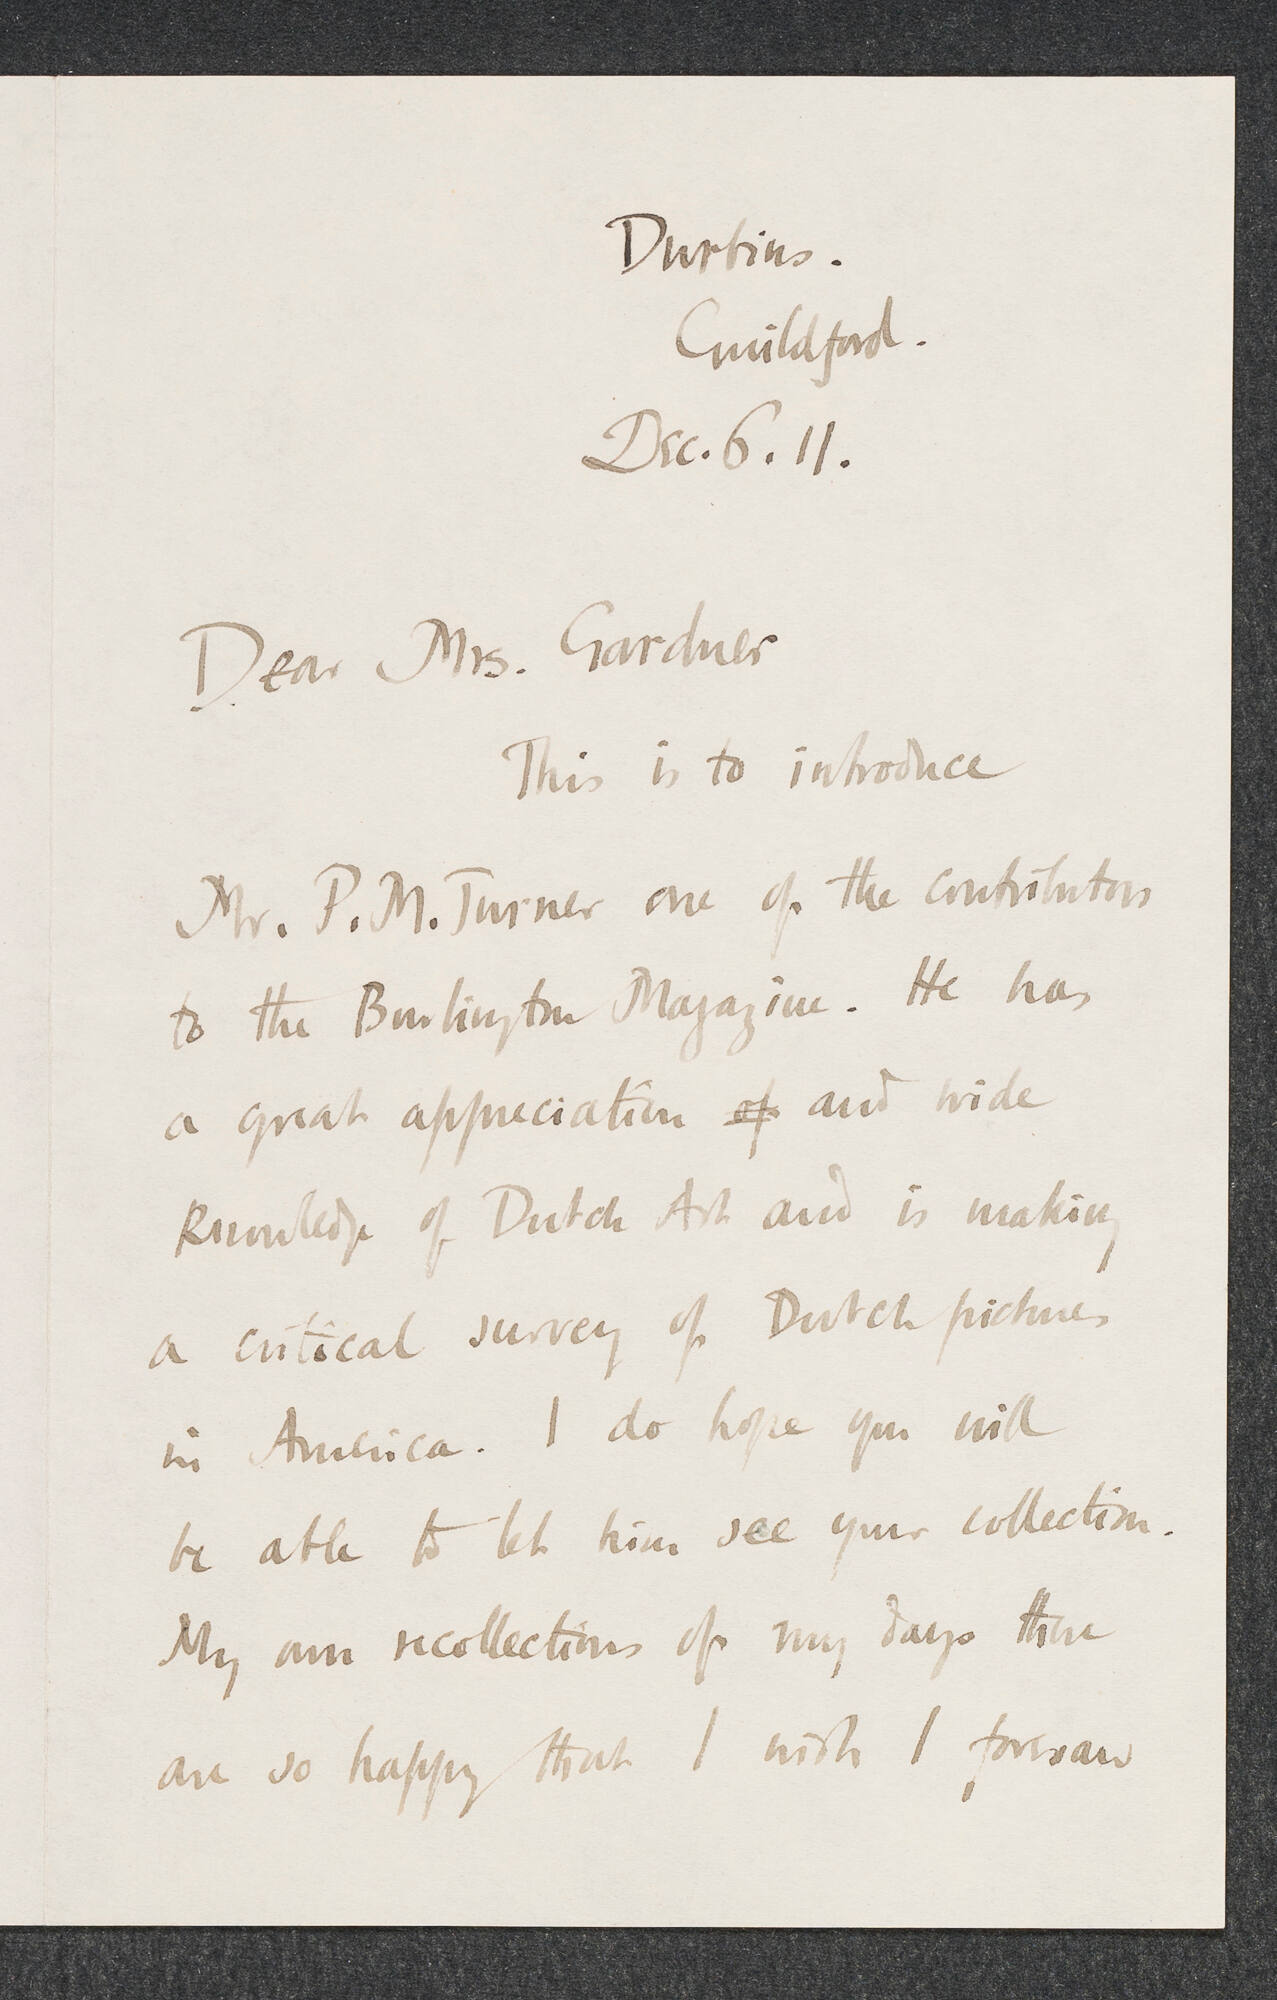 Durbins.
Guildford.
Dec. 6. 11.
Dear Mrs. Gardner
This is to introduce
Mr. P. M. Turner one of the contributors
to the Burlington Magazine. He has
a great appreciation of and wide
knowledge of Dutch Art and is making
a critical survey of Dutch pictures
in America. I do hope you will
be able to let him see your collection.
My own recollections of my days there
are so happy that I wish I foresaw